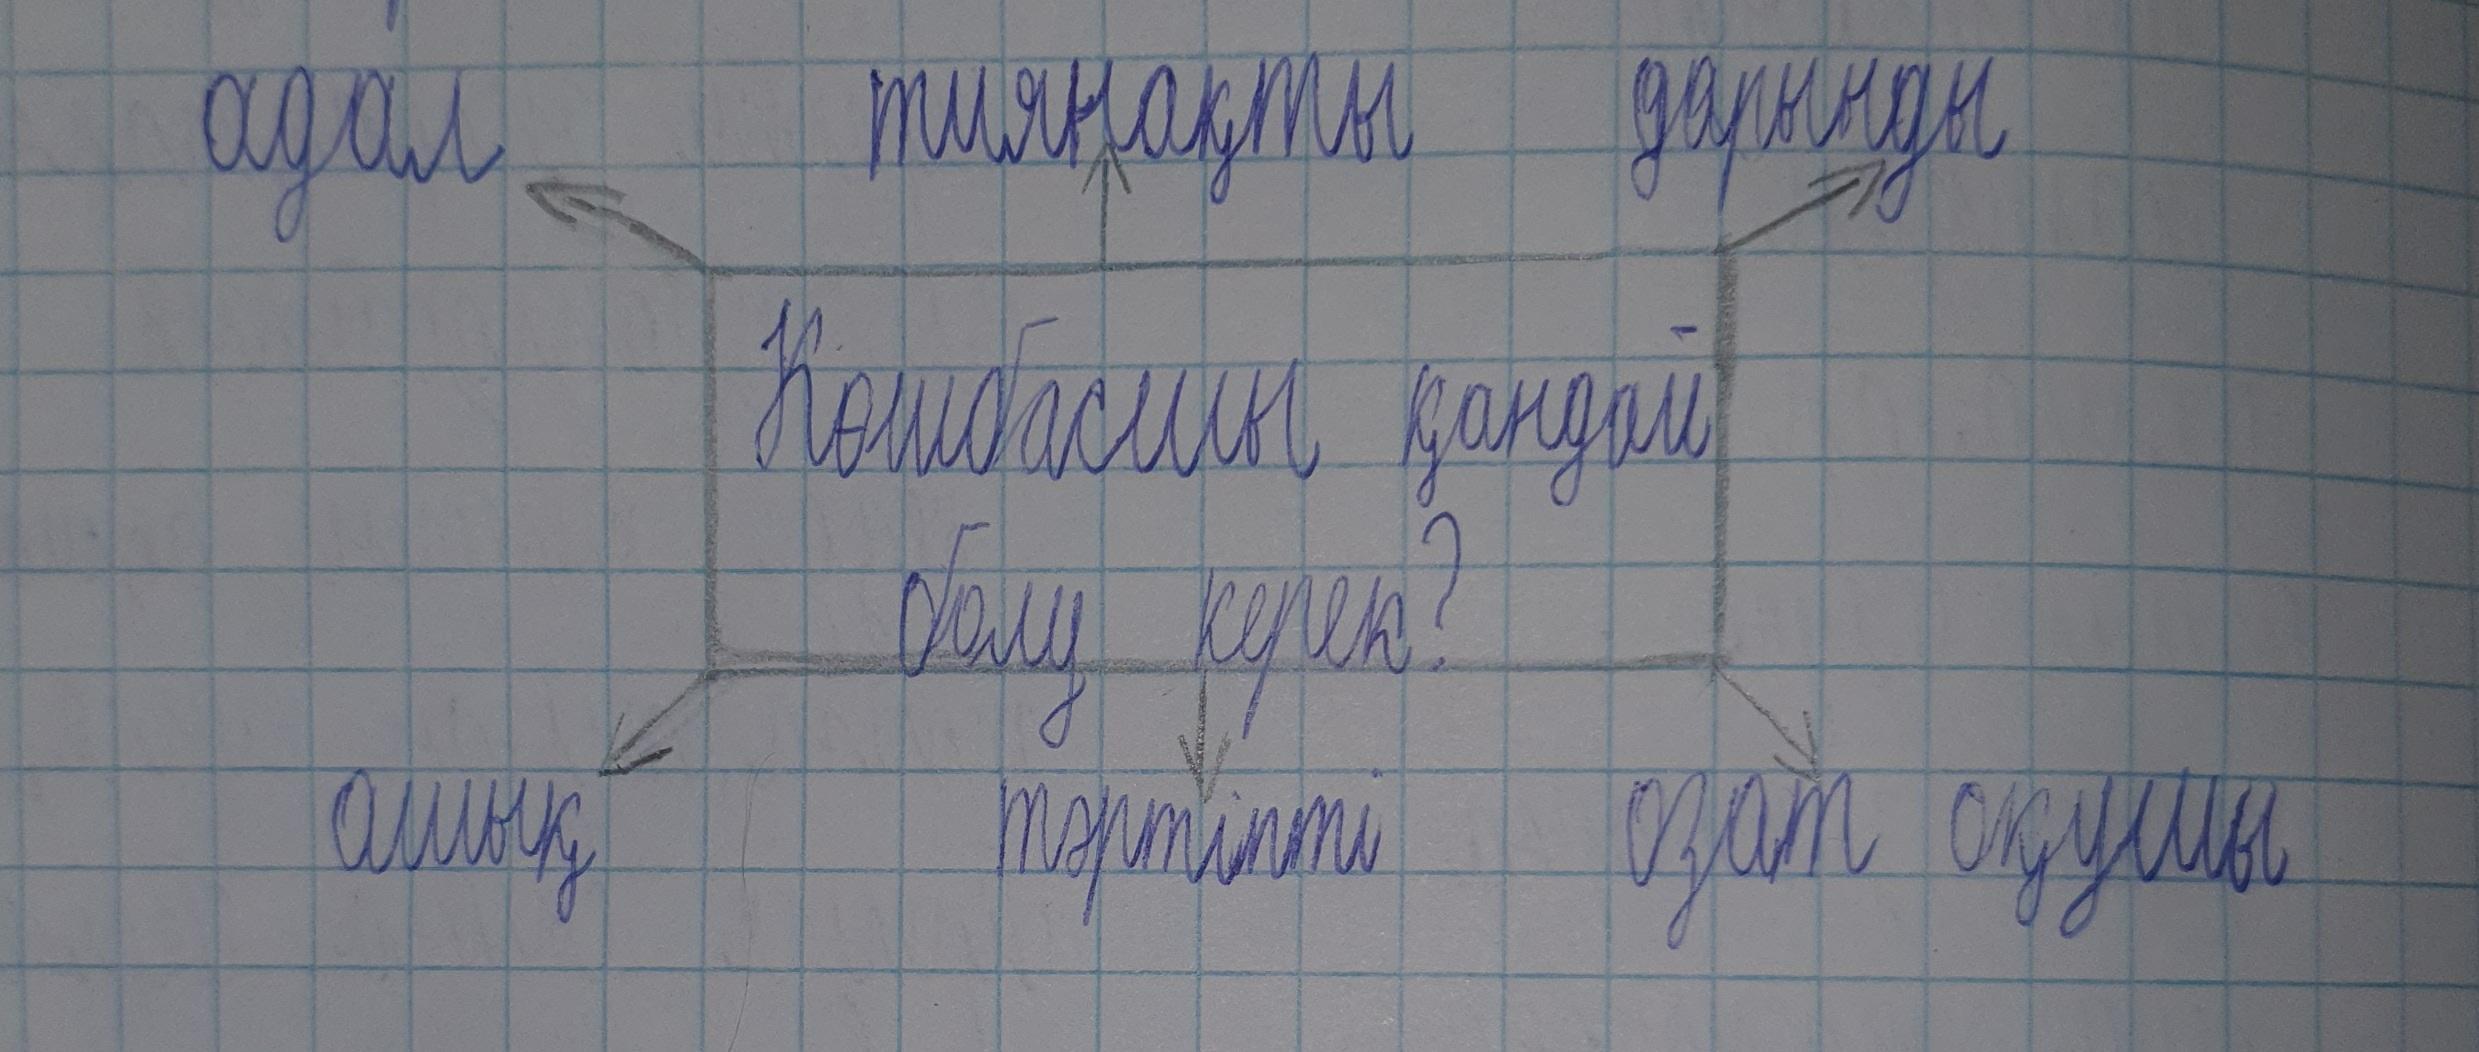 адал тиянақты дарынды
Көшбасшы қандай
болу керек?
ашық тәртіпті озат оқушы